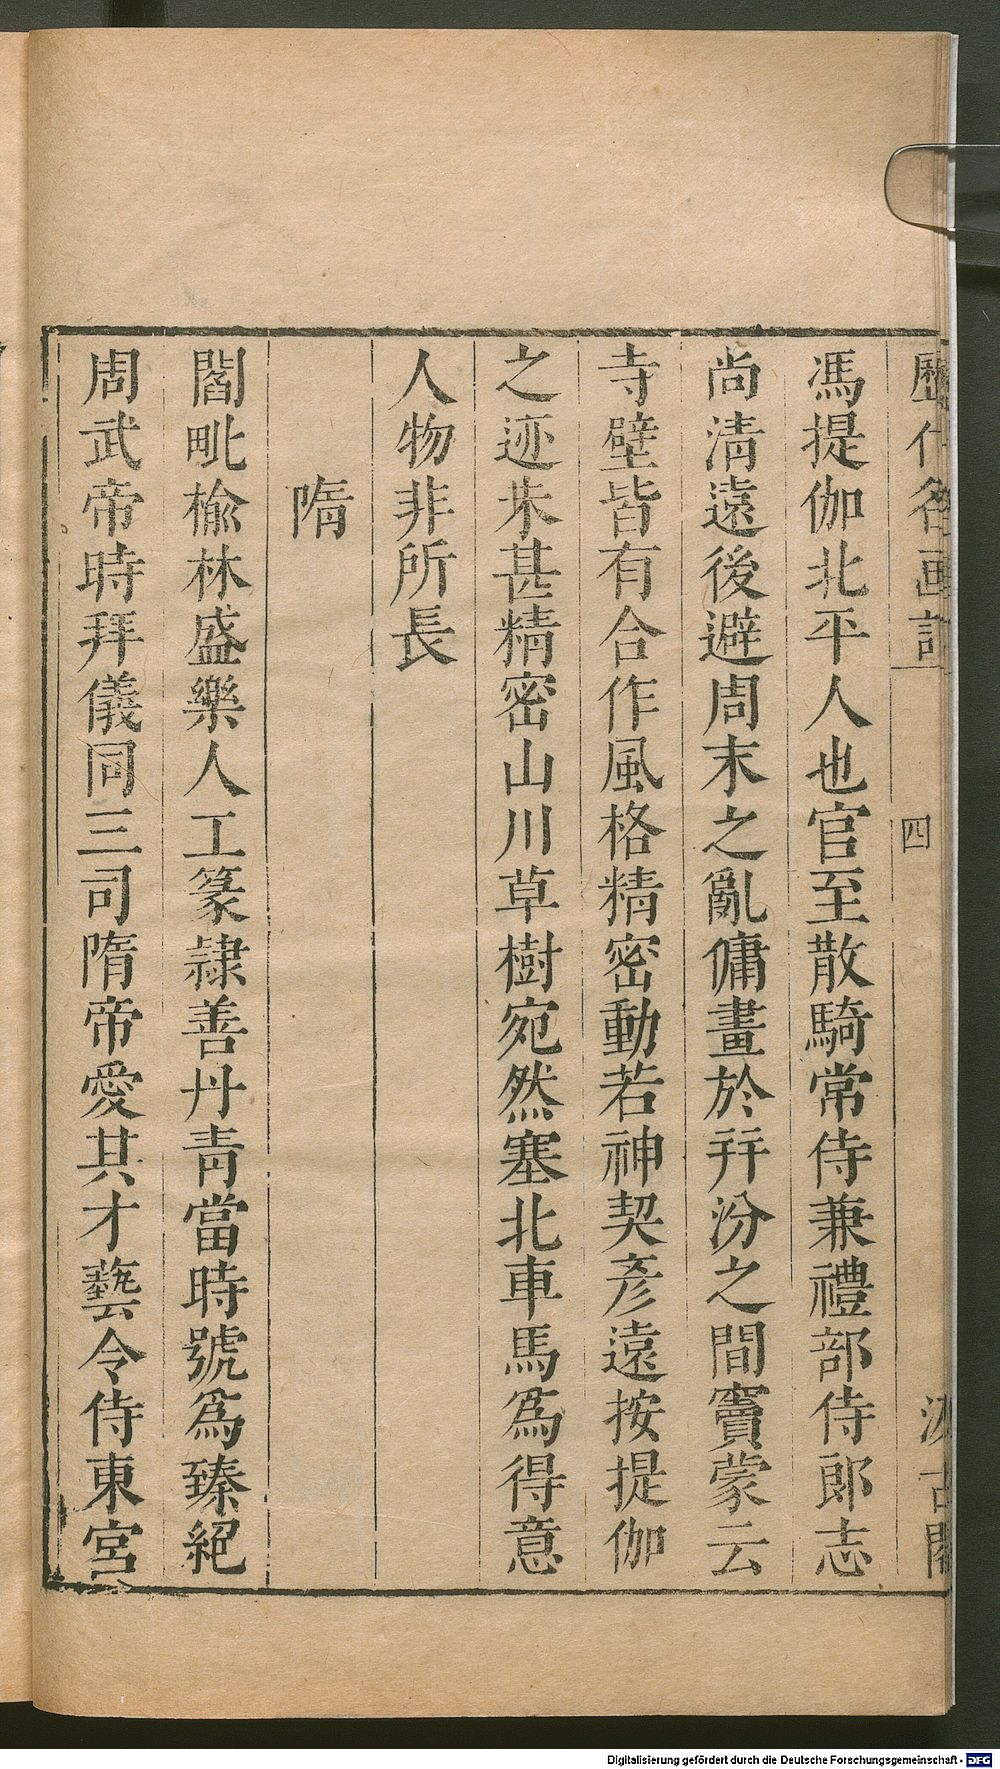 歷代名画記 四 汲古閣
馮提伽北平人也官至散騎常侍兼禮部侍郎志
尚清遠後避周末之亂傭畫於幷汾之間竇蒙云
寺壁皆有合作風格精密動若神契彥遠按提伽
之迹未甚精密山川草樹宛然塞北車馬爲得意
人物非所長
隋
閻毗榆林盛樂人工篆隷善丹青當時號爲臻絕
周武帝時拜儀同三司隋帝愛其才藝令侍東宮
Digitalisierung gefördert durch die Deutsche Forschungsgemeinschaft - DFG